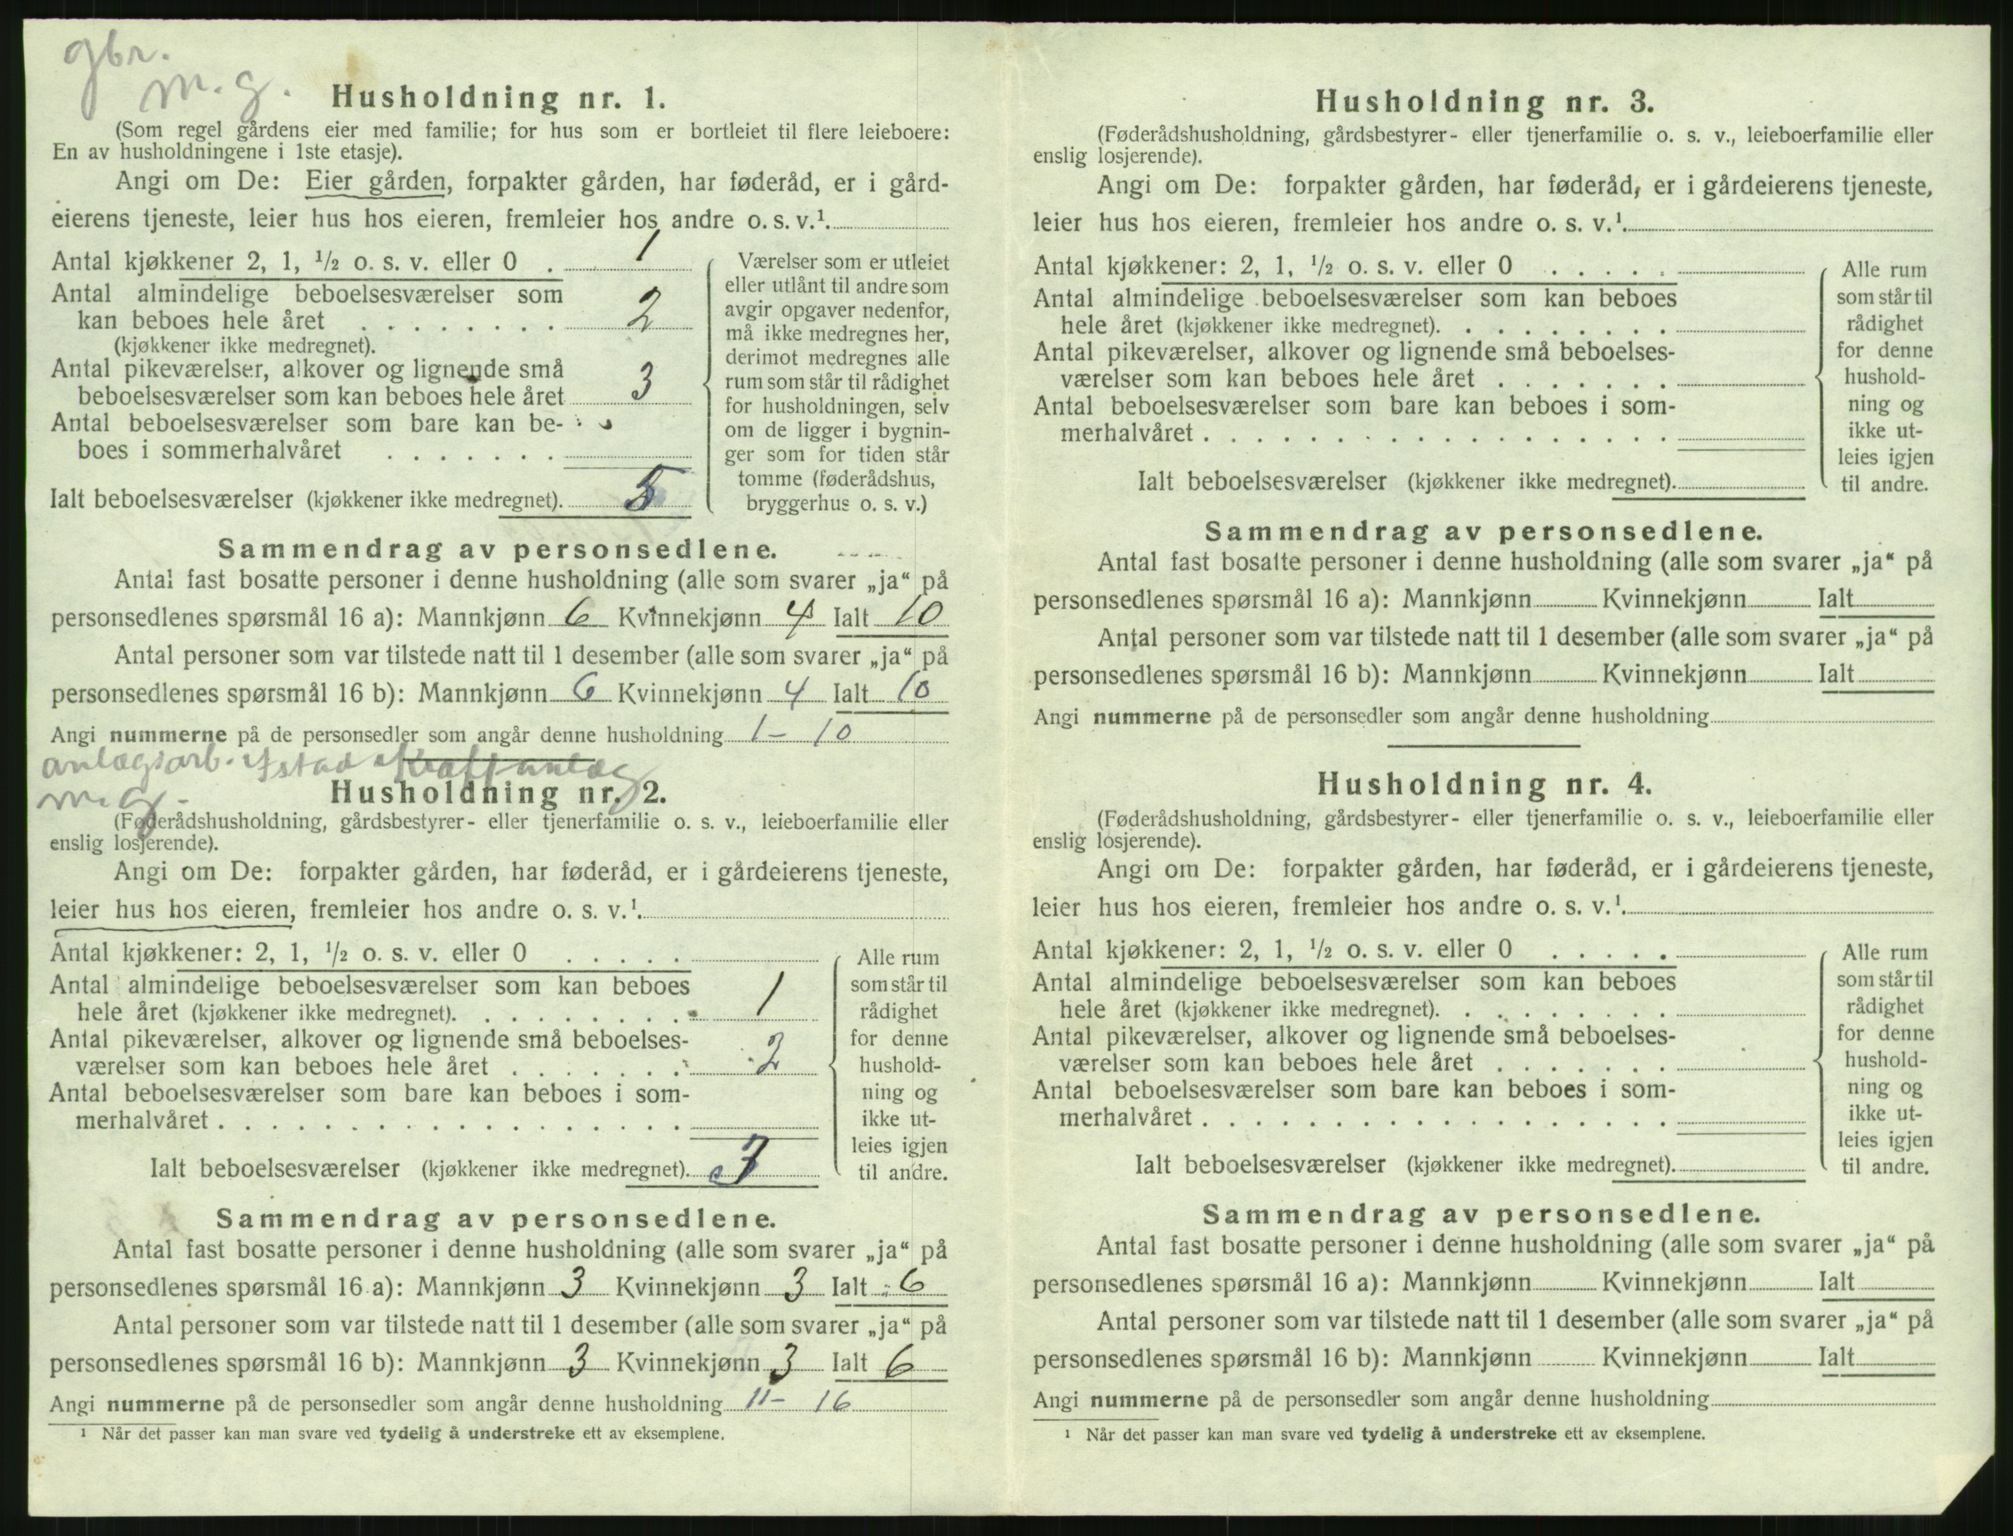 gbr.
m.g.
Husholdning nr. 1.
(Som regel gårdens eier med familie; for hus som er bortleiet til flere leieboere:
En av husholdningene i 1ste etasje).
Angi om De: Eier gården, forpakter gården, har føderåd, er i gård-
eierens tjeneste, leier hus hos eieren, fremleier hos andre o. s. v.¹.
Antal kjøkkener 2, 1, ½ o. s. v. eller 0 . 1
Antal almindelige beboelsesværelser som
kan beboes hele året . . . . . . . . 2
(kjøkkener ikke medregnet).
Antal pikeværelser, alkover og lignende små
beboelsesværelser som kan beboes hele året 3
Antal beboelsesværelser som bare kan be-
boes i sommerhalvåret . . . . . . .
Ialt beboelsesværelser (kjøkkener ikke medregnet). 5
Værelser som er utleiet
eller utlånt til andre som
avgir opgaver nedenfor,
må ikke medregnes her,
derimot medregnes alle
rum som står til rådighet
for husholdningen, selv
om de ligger i bygnin-
ger som for tiden står
tomme (føderådshus,
bryggerhus o. s. v.)
Sammendrag av personsedlene.
Antal fast bosatte personer i denne husholdning (alle som svarer „ja“ på
personsedlenes spørsmål 16 a): Mannkjønn 6 Kvinnekjønn 4 Ialt 10
Antal personer som var tilstede natt til 1 desember (alle som svarer „ja“ på
personsedlenes spørsmål 16 b): Mannkjønn 6 Kvinnekjønn 4 Ialt 10
Angi nummerne på de personsedler som angår denne husholdning 1 - 10
anlægsarb. Kraftanlæg
m.g.
Husholdning nr. 2.
(Føderådshusholdning, gårdsbestyrer- eller tjenerfamilie o. s. v., leieboerfamilie eller
enslig losjerende).
Angi om De: forpakter gården, har føderåd, er i gårdeierens tjeneste,
leier hus hos eieren, fremleier hos andre o. s. v.¹.
Antal kjøkkener: 2, 1, ½ o. s. v. eller 0 . . . . .
Antal almindelige beboelsesværelser som kan beboes
hele året (kjøkkener ikke medregnet). . . . . . . . . 1
Antal pikeværelser, alkover og lignende små beboelses-
værelser som kan beboes hele året . . . . . . . 2
Antal beboelsesværelser som bare kan beboes i som-
merhalvåret . . . . . . . . . . . . . . . . . .
Ialt beboelsesværelser (kjøkkener ikke medregnet). 3
Alle rum
som står til
rådighet
for denne
hushold-
ning og
ikke ut-
leies igjen
til andre.
Sammendrag av personsedlene.
Antal fast bosatte personer i denne husholdning (alle som svarer „ja“ på
personsedlenes spørsmål 16 a): Mannkjønn 3 Kvinnekjønn 3 Ialt 6
Antal personer som var tilstede natt til 1 desember (alle som svarer „ja“ på
personsedlenes spørsmål 16 b): Mannkjønn 3 Kvinnekjønn 3 Ialt 6
Angi nummerne på de personsedler som angår denne husholdning 11 - 16
¹ Når det passer kan man svare ved tydelig å understreke ett av eksemplene.
Husholdning nr. 3.
(Føderådshusholdning, gårdsbestyrer- eller tjenerfamilie o. s. v., leieboerfamilie eller
enslig losjerende).
Angi om De: forpakter gården, har føderåd, er i gårdeierens tjeneste,
leier hus hos eieren, fremleier hos andre o. s. v.¹.
Antal kjøkkener: 2, 1, ½ o. s. v. eller 0 . . . . .
Antal almindelige beboelsesværelser som kan beboes
hele året (kjøkkener ikke medregnet). . . . . . . . .
Antal pikeværelser, alkover og lignende små beboelses-
værelser som kan beboes hele året . . . . . . .
Antal beboelsesværelser som bare kan beboes i som-
merhalvåret . . . . . . . . . . . . . . . . . .
Ialt beboelsesværelser (kjøkkener ikke medregnet).
Alle rum
som står til
rådighet
for denne
hushold-
ning og
ikke ut-
leies igjen
til andre.
Sammendrag av personsedlene.
Antal fast bosatte personer i denne husholdning (alle som svarer „ja“ på
personsedlenes spørsmål 16 a): Mannkjønn Kvinnekjønn Ialt
Antal personer som var tilstede natt til 1 desember (alle som svarer „ja“ på
personsedlenes spørsmål 16 b): Mannkjønn Kvinnekjønn Ialt
Angi nummerne på de personsedler som angår denne husholdning
Husholdning nr. 4.
(Føderådshusholdning, gårdsbestyrer- eller tjenerfamilie o. s. v., leieboerfamilie eller
enslig losjerende).
Angi om De: forpakter gården, har føderåd, er i gårdeierens tjeneste,
leier hus hos eieren, fremleier hos andre o. s. v.¹.
Antal kjøkkener: 2, 1, ½ o. s. v. eller 0 . . . . .
Antal almindelige beboelsesværelser som kan beboes
hele året (kjøkkener ikke medregnet). . . . . . . . .
Antal pikeværelser, alkover og lignende små beboelses-
værelser som kan beboes hele året . . . . . . .
Antal beboelsesværelser som bare kan beboes i som-
merhalvåret . . . . . . . . . . . . . . . . . .
Ialt beboelsesværelser (kjøkkener ikke medregnet).
Alle rum
som står til
rådighet
for denne
hushold-
ning og
ikke ut-
leies igjen
til andre.
Sammendrag av personsedlene.
Antal fast bosatte personer i denne husholdning (alle som svarer „ja“ på
personsedlenes spørsmål 16 a): Mannkjønn Kvinnekjønn Ialt
Antal personer som var tilstede natt til 1 desember (alle som svarer „ja“ på
personsedlenes spørsmål 16 b): Mannkjønn Kvinnekjønn Ialt
Angi nummerne på de personsedler som angår denne husholdning
¹ Når det passer kan man svare ved tydelig å understreke ett av eksemplene.